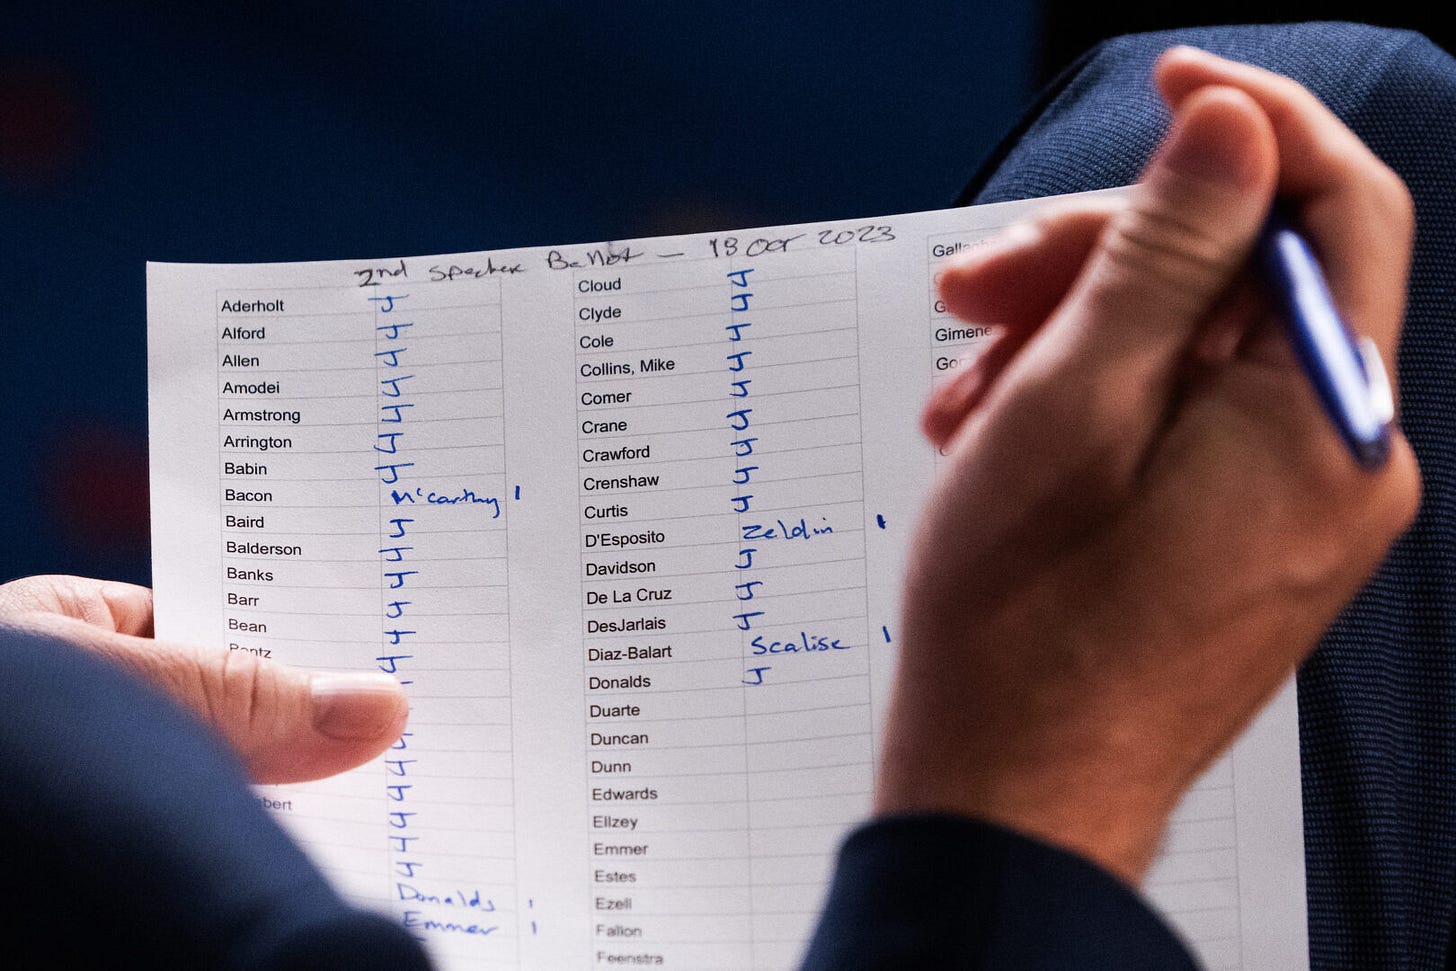 2nd Speaker Ballot — 18 Oct 2023
Aderholt J
Alford J
Allen J
Amodei J
Armstrong J
Arrington J
Babin J
Bacon McCarthy 1
Baird J
Balderson J
Banks J
Barr J
Bean J
Bentz J
J
J
J
J
J
J
Donalds 1
Emmer 1
Cloud J
Clyde J
Cole J
Collins, Mike J
Comer J
Crane J
Crawford J
Crenshaw J
Curtis J
D'Esposito Zeldin 1
Davidson J
De La Cruz J
DesJarlais J
Diaz-Balart Scalise 1
Donalds J
Duarte
Duncan
Dunn
Edwards
Ellzey
Emmer
Estes
Ezell
Fallon
Feenstra